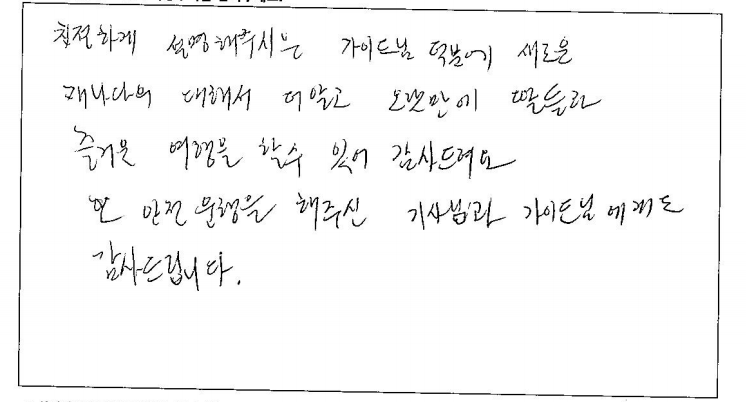 친절하게 설명해주시는 가이드님 덕분에 새로운
캐나다의 대해서 더 알고 오랜만에 딸들과
즐거운 여행을 할수 있어 감사드려요
또 안전 운행을 해주신 기사님과 가이드님에게도
감사드립니다.